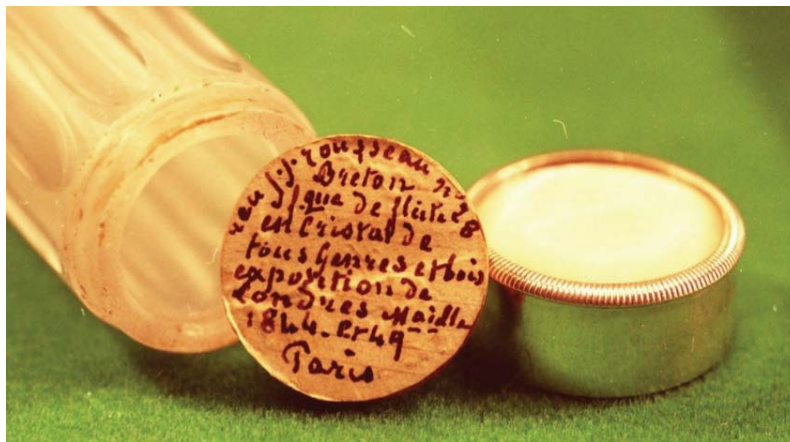 rue J.J. rousseau n°
Breton 28
fque de flutes
en Cristal de
tous Genres et bois
exposition de
Londres Maidlle
1844. Et 49
Paris